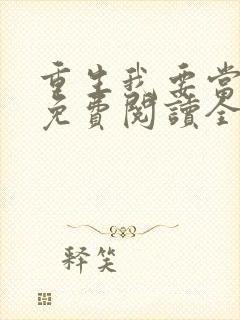 重生我要當
免費閱讀全
释笑